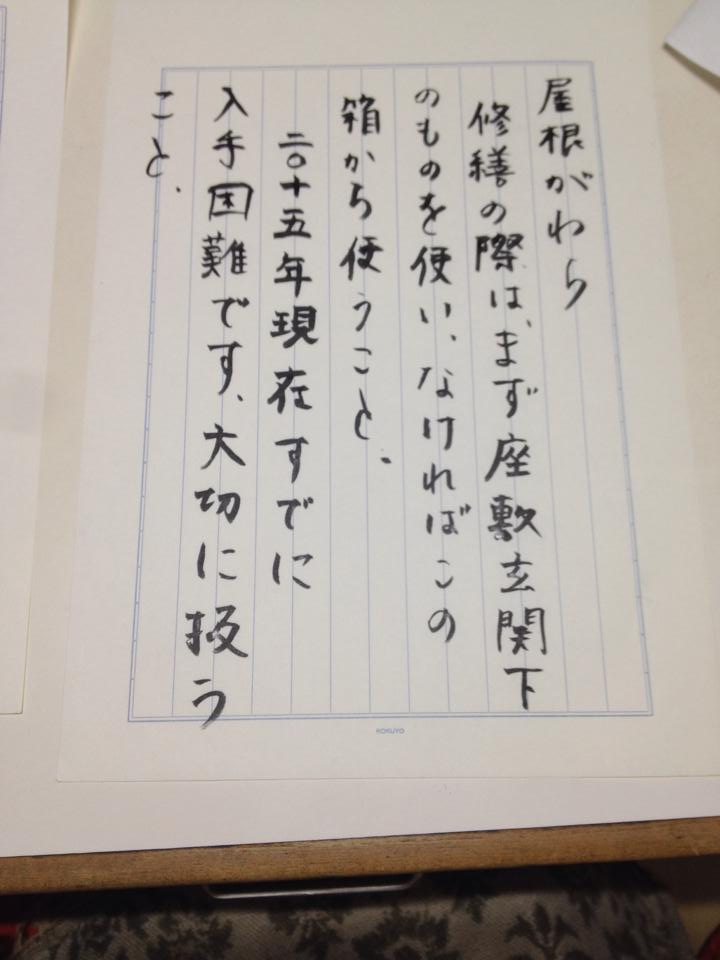 屋根がわら
修繕の際は、まず座敷玄関下
のものを使い、なければこの
箱から使うこと、
二〇十五年現在すでに
入手困難です、大切に扱う
こと、
KOKUYO